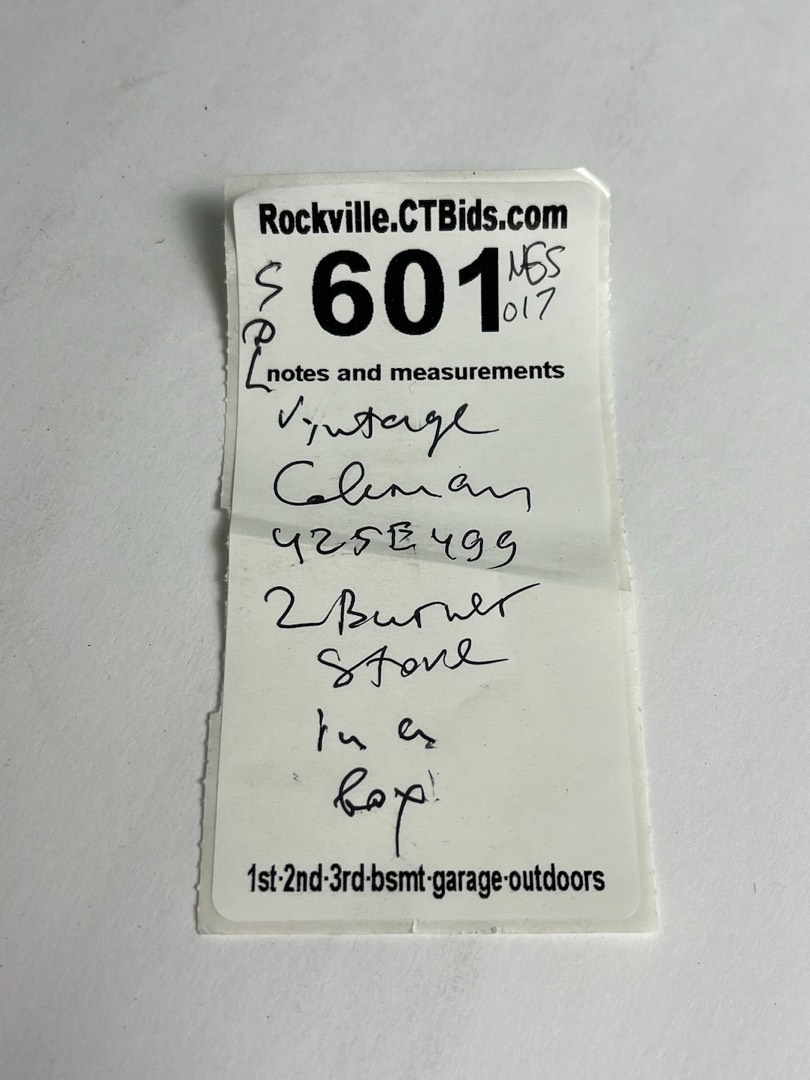 Rockville.CTBids.com
601
MGS
017
S
P
L
notes and measurements
Vintage
Coleman
425E499
2 Burner
Stove
in a
box
1st·2nd·3rd·bsmt·garage·outdoors